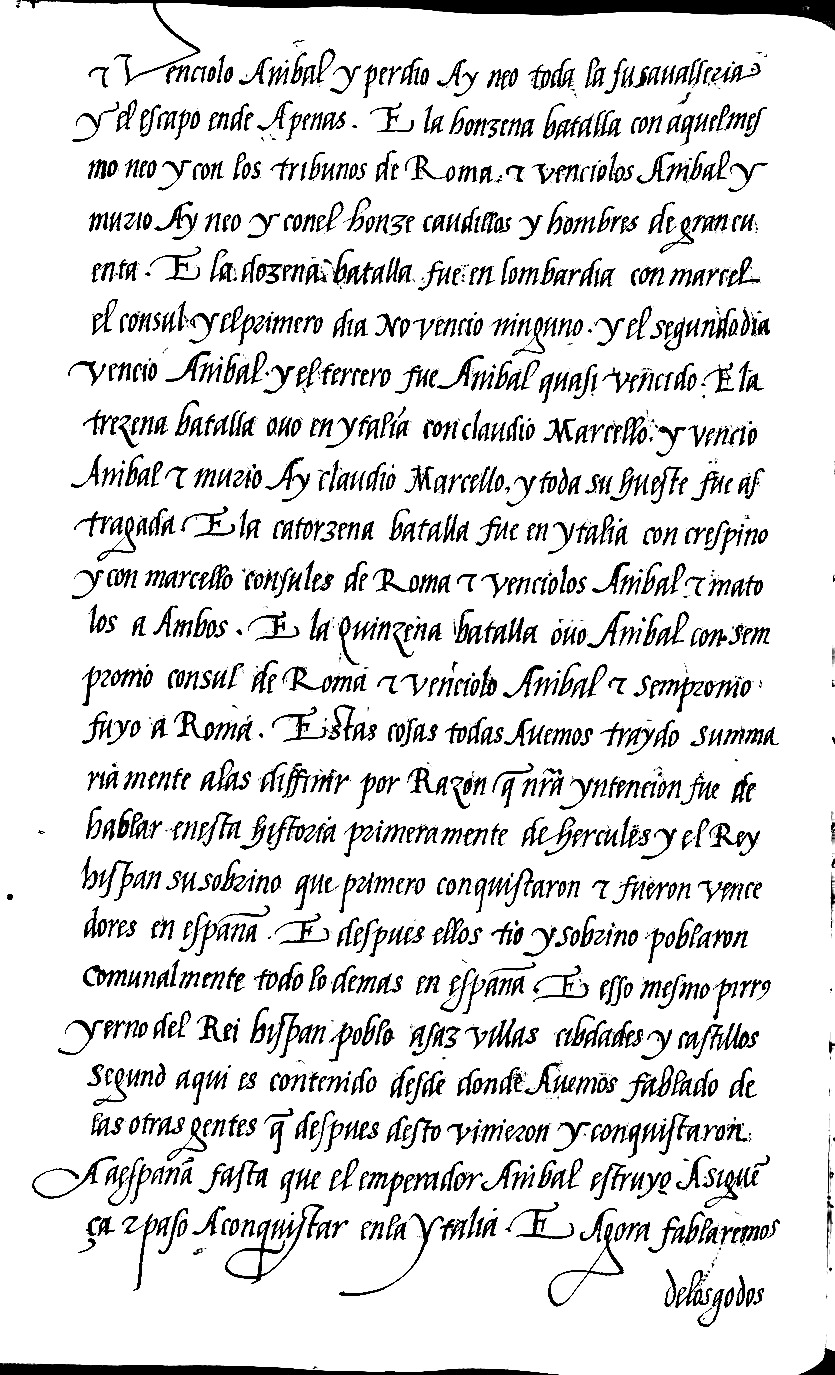 ⁊ Venciolo Anibal y perdio Ay neo toda la su cavalleria
y el escapo ende Apenas. E la honzena batalla con aquel mes
mo neo y con los tribunos de Roma. ⁊ venciolos Anibal y
murio Ay neo y conel honze caudillos y hombres de gran cu
enta. E la dozena batalla fue en lombardia con marcel
el consul y el primero dia No vencio ninguno. y el segundo dia
vencio Anibal. y el tercero fue Anibal quasi vencido. E la
trezena batalla ouo en ytalia con claudio Marcello. y vencio
Anibal ⁊ murio Ay claudio Marcello, y toda su hueste fue as
tragada E la catorzena batalla fue en ytalia con crespino
y con marcello consules de Roma ⁊ venciolos Anibal ⁊ mato
los a Ambos. E la Quinzena batalla ouo Anibal con sem
promo consul de Roma ⁊ venciolo Anibal ⁊ sempromo
fuyo a Roma. Estas cosas todas Auemos traydo summa
ria mente a las diffinir por Razon q̃ nr̃a yntencion fue de
hablar enesta historia primeramente de hercules y el Rey
hispan su sobrino que primero conquistaron ⁊ fueron vence
dores en españa. E despues ellos tio y sobrino poblaron
comunalmente todo lo demas en españa. E esso mesmo pirrꝰ
yerno del Rei hispan poblo asaz villas cibdades y castillos
Segund aqui es contenido desde donde Auemos fablado de
las otras gentes q̃ despues desto vinieron y conquistaron
A aespaña fasta que el emperador Anibal estruyo A siguẽ
ça ⁊ paso A conquistar enla ytalia. E Agora fablaremos
delos godos